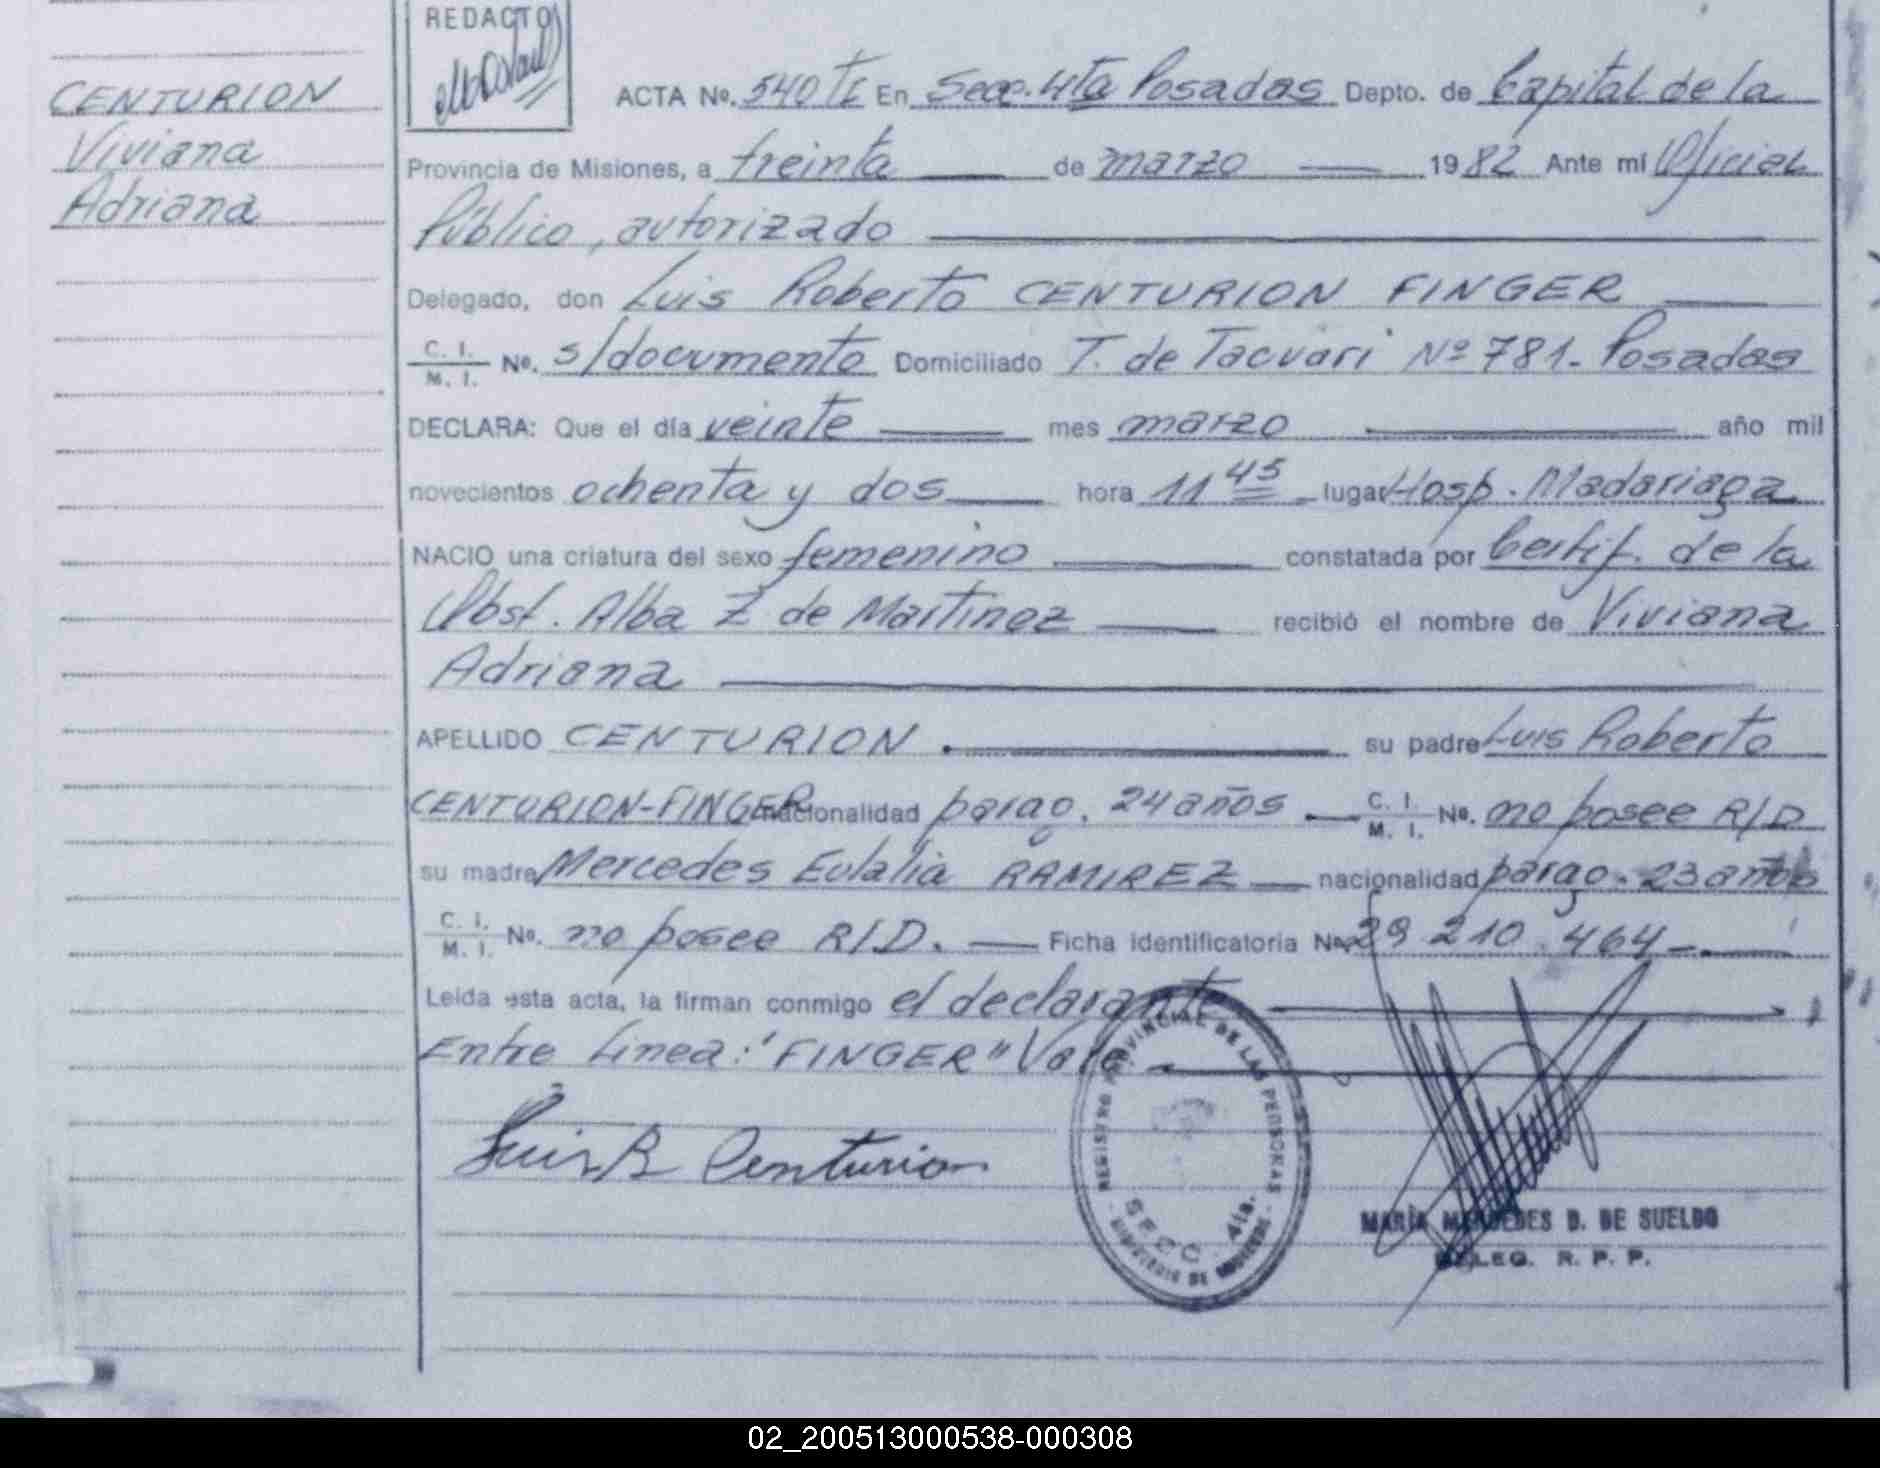 REDACTO
CENTURION
Viviana
Adriana
ACTA No. 540 TI En Secc. 4ta Posadas Depto. de Capital de la
Provincia de Misiones, a treinta de marzo 1982 Ante mi Oficial
Público, autorizado
Delegado, don Luis Roberto CENTURION FINGER
C. I. / M. I. No. s/documento Domiciliado T. de Tacuari Nº 781- Posadas
DECLARA: Que el día veinte mes marzo año mil
novecientos ochenta y dos hora 11 45 lugar Hosp. Madariaga
NACIO una criatura del sexo femenino constatada por Certif. de la
Obst. Alba Z de Martinez recibió el nombre de Viviana
Adriana
APELLIDO CENTURION su padre Luis Roberto
CENTURION-FINGER nacionalidad parag. 24 años C. I. / M. I. No. no posee R/D
su madre Mercedes Eulalia RAMIREZ nacionalidad parag. 23 años
C. I. / M. I. No. no posee R/D. Ficha identificatoria No. 29 210.464-
Leída esta acta, la firman conmigo el declarante
Entre Linea: "FINGER" Vale
Luis R Centurion
REGISTRO PROVINCIAL DE LAS PERSONAS
SECC. 4ta.
MARÍA MERCEDES D. DE SUELDO
DELEG. R. P. P.
02_200513000538-000308